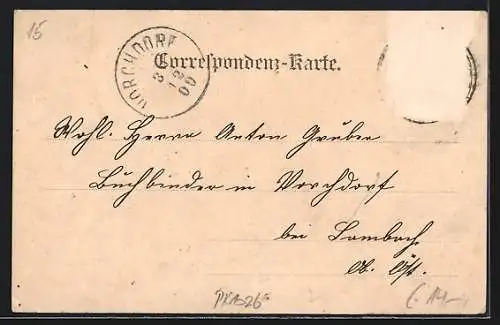 15
VORCHDORF
3 12 00
Correspondenz-Karte.
Wohl. Herrn Anton Gruber
Buchbinder in Vorchdorf
bei Lambach
Ob. Öst.
PKA26